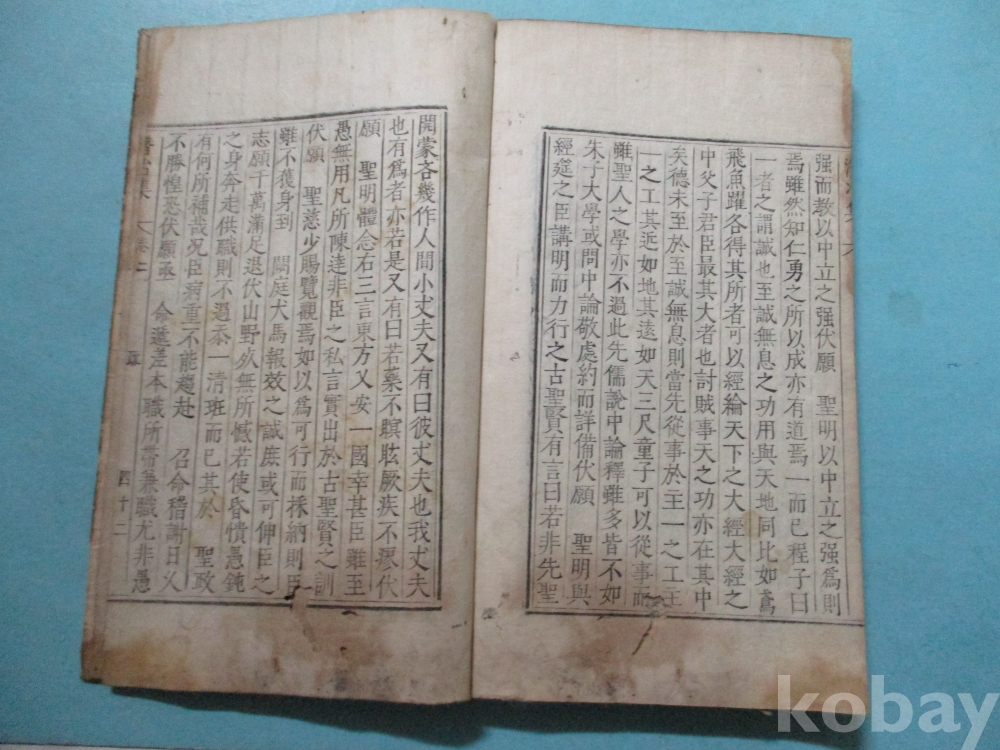 强而敎以中立之强伏願 聖明以中立之强爲則
焉雖然知仁勇之所以成亦有道焉一而已程子曰
一者之謂誠也至誠無息之功用與天地同比如鳶
飛魚躍各得其所者可以經綸天下之大經大經之
中父子君臣最其大者也討賊事天之功亦在其中
矣德未至於至誠無息則當先從事於主一之工主
一之工其近如地其遠如天三尺童子可以從事
雖聖人之學亦不過此先儒說中論釋雖多皆不如
朱子大學或問中論敬處約而詳備伏願 聖明與
經筵之臣講明而力行之古聖賢有言曰若非先聖
開蒙吝幾作人間小丈夫又有曰彼丈夫也我丈夫
也有爲者亦若是又有曰若藥不瞑眩厥疾不瘳伏
願 聖明體念右三言東方乂安一國幸甚臣雖至
愚無用凡所陳達非臣之私言實出於古聖賢之訓
伏願 聖慈少賜覽觀焉如以爲可行而採納則臣
雖不獲身到 闕庭犬馬報效之誠庶或可伸臣之
志願千萬滿足退伏山野死無所憾若使昏憒愚鈍
之身奔走供職則不過忝一清班而已其於 聖政
有何所補哉况臣病重不能趨赴 召命稽謝日久
不勝惶恐伏願亟 命遞差本職所帶兼職尤非愚
集 卷二 四十二
kobay